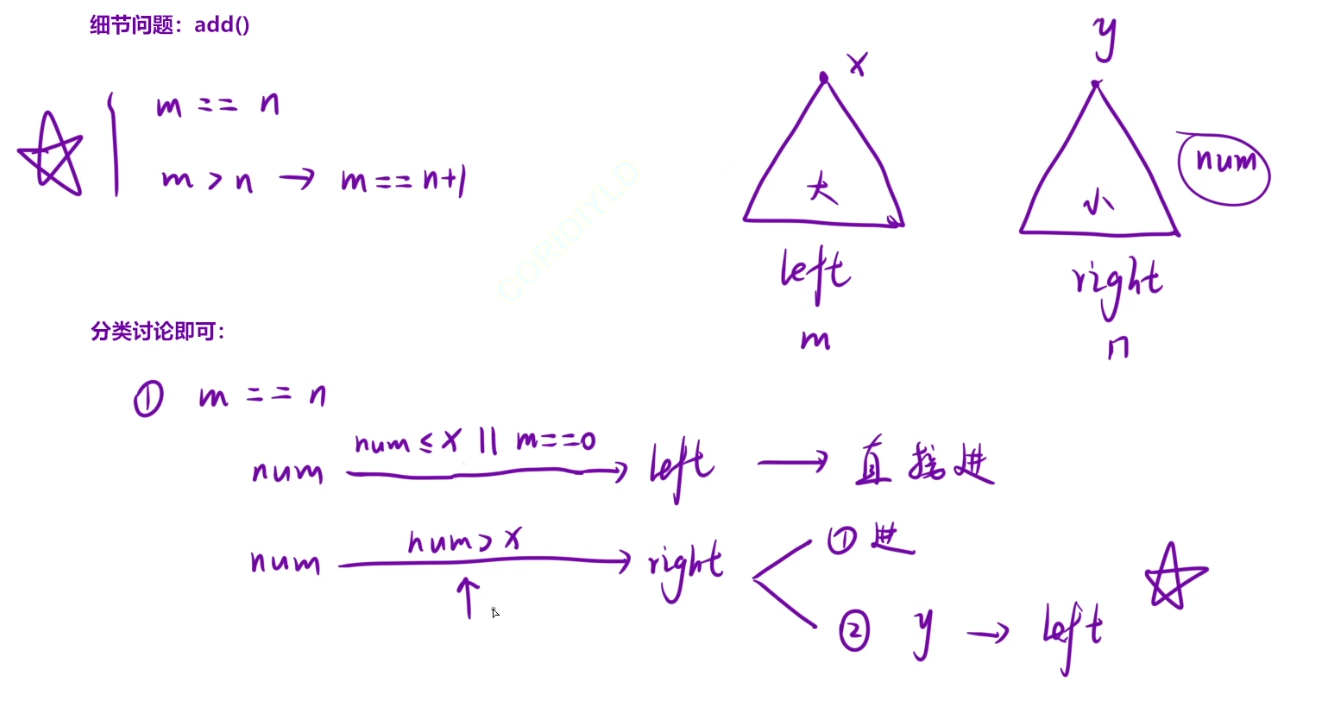 细节问题：add()
m == n
m > n → m == n+1
x
大
left
m
y
小
num
right
n
CORIDIYLD
分类讨论即可：
① m == n
num ≤ x || m==0
num → left → 直接进
num > x
num → right ① 进
② y → left